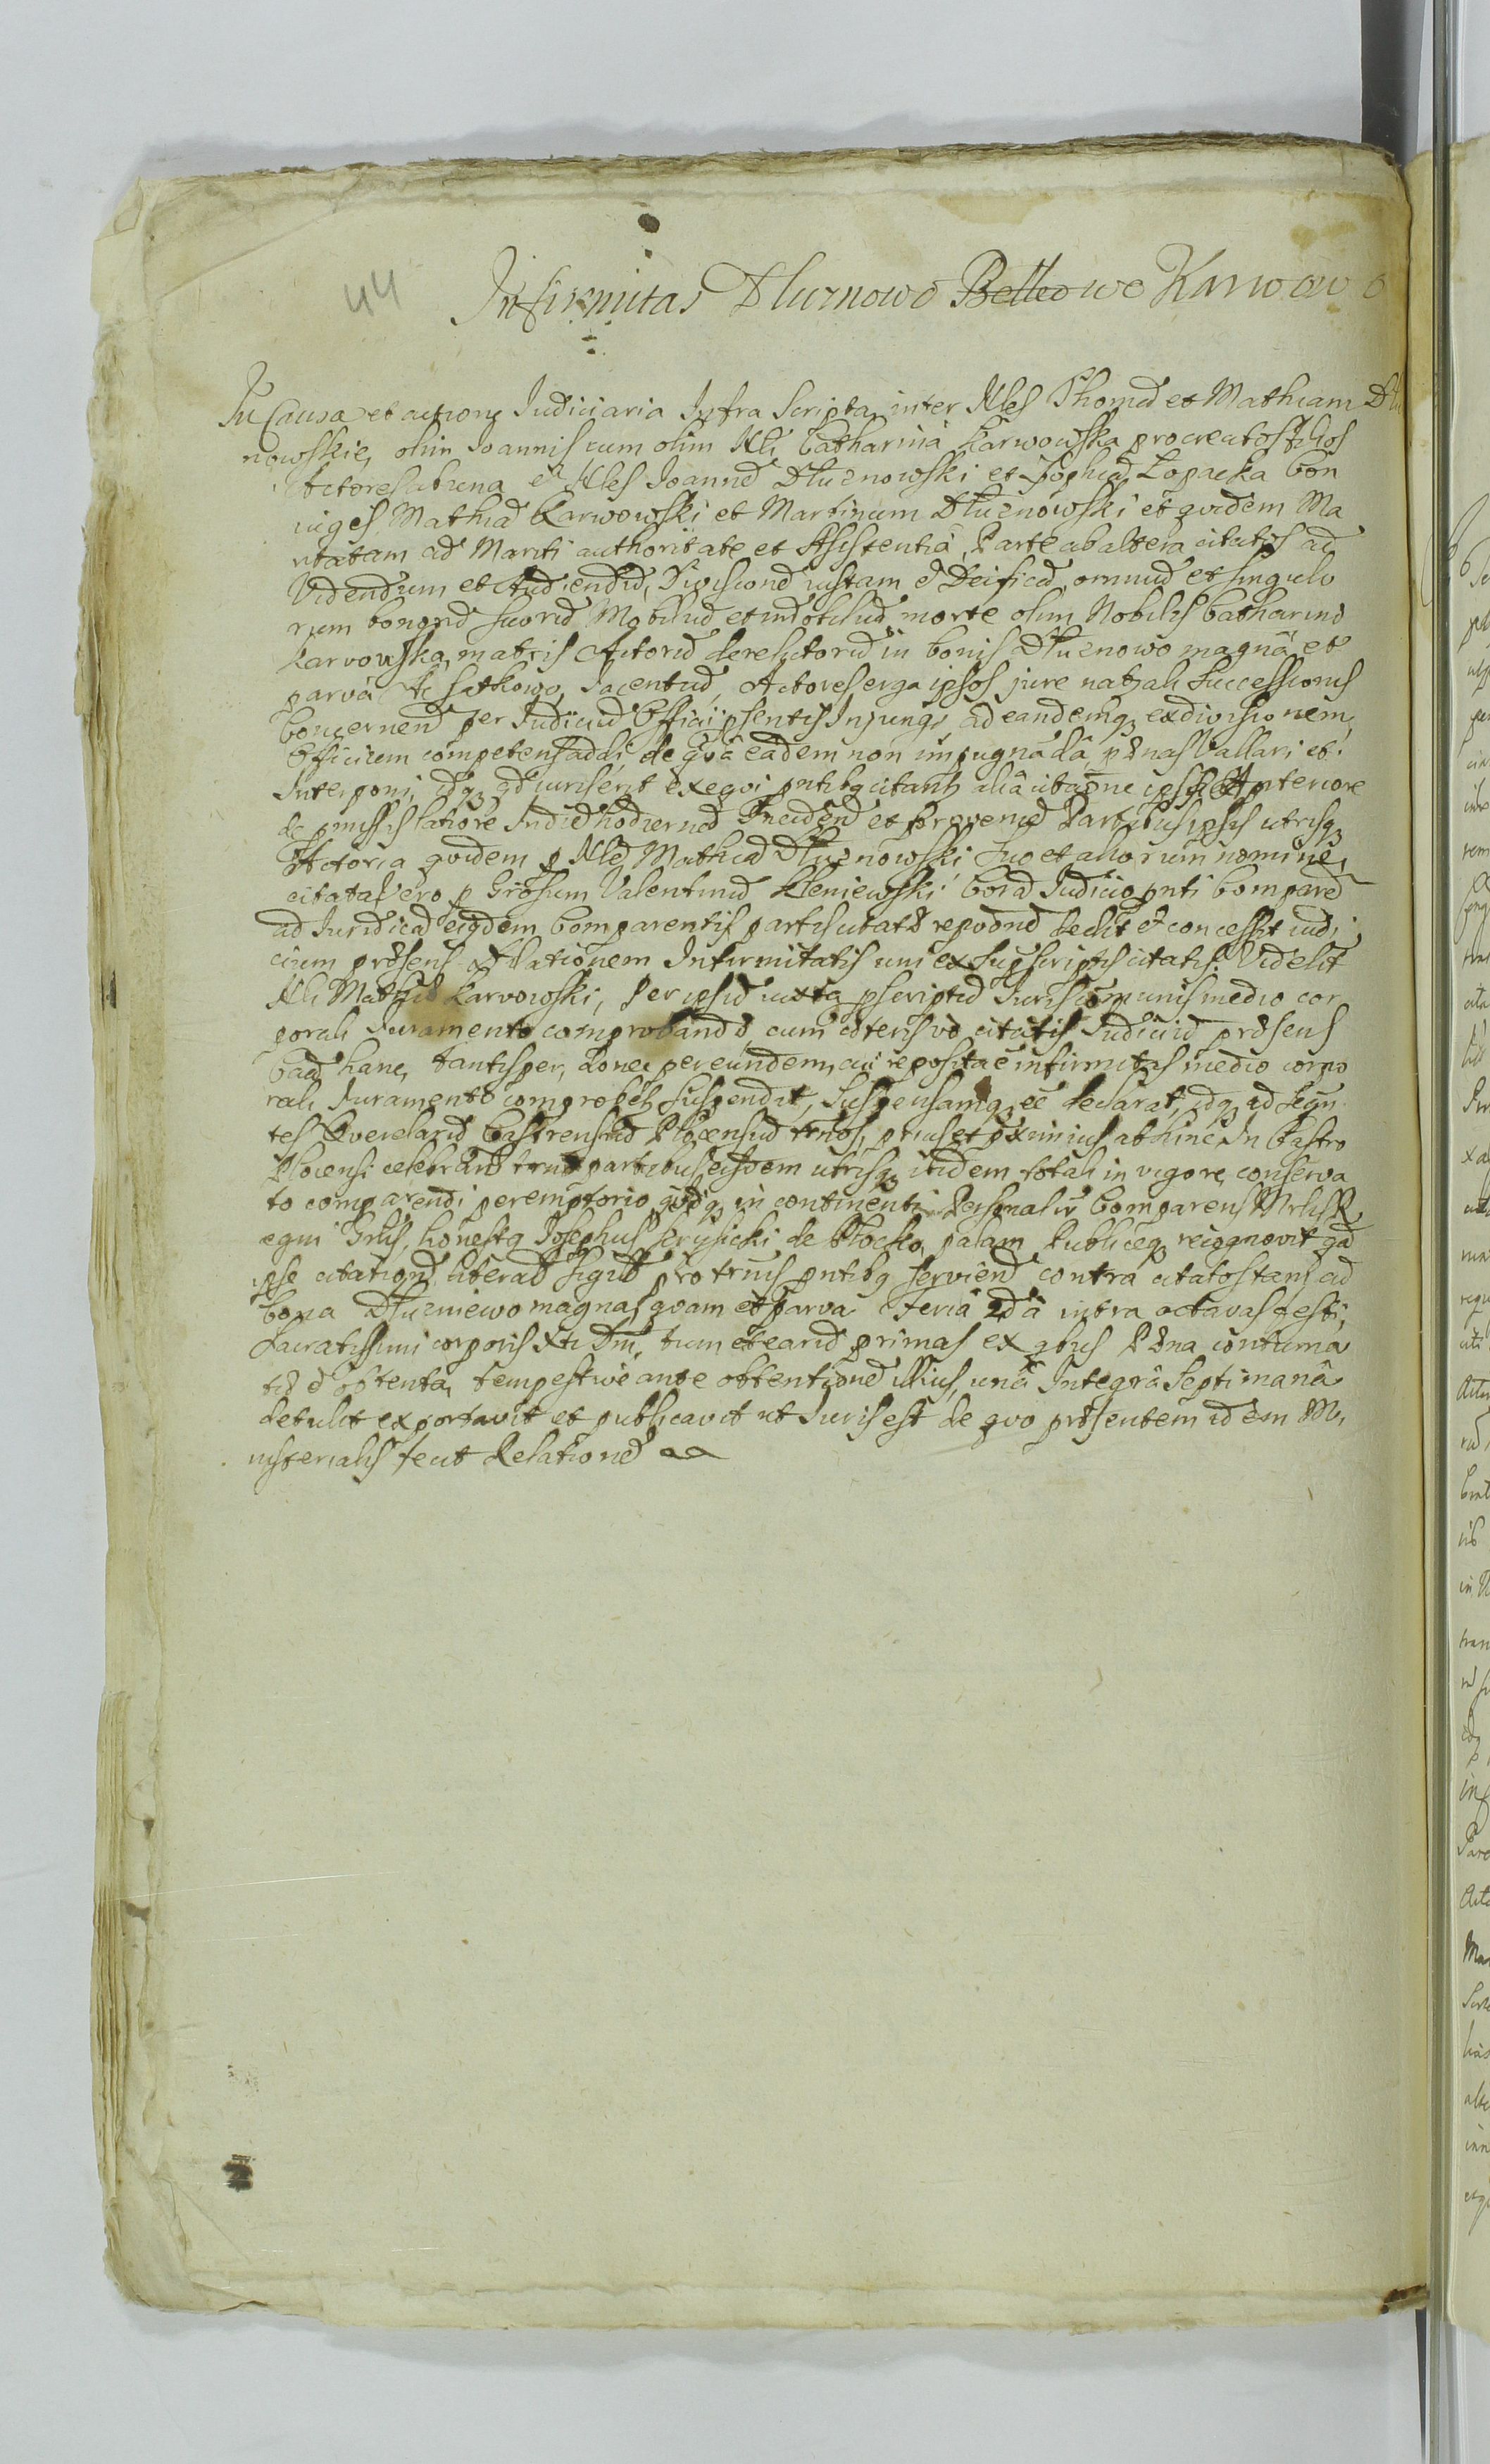 44
Infirmitas Dluznowo Belleo we Karwowo
In Causa et actione Judiciaria Infra scripta inter Nles Thomã et Mathiam Dlu
nowskie, olim Joannis cum olim Nli Catharina Karwowska procreatos filios
Actores ab una et Nles Joannẽ Dłuznowski et Sophiã Lopacka Con
iuges Mathiã Karwowski et Martinum Dłuznowski et quidem Ma
ritatam ad Mariti authoritate et Assistentiâ Parte ab altera citatos ad
Videndum et Audiendũ, Divisionẽ iustam et Deificã, omniũ et singulo
rum bonorũ suorũ Mobiliũ et imobiliũ morte olim Nobilis Catharinæ
Karwowska matris Actorũ derelictorũ in bonis Dłuznowo magnâ et
parvâ Ac Satkowo Jacentiũ, Actores erga ipsos jure natali Successionis
Concernend per Judiciũ Officii psentis Injungi ad eandemq exdivisionem
Officium competens addi, de quâ eadem non impugnãdâ pænas Vallari et
Interponi, idq qd iuris erit exequi
de pmissis latiore Indie hodiernâ Incidend et proveniẽ Partibus ipsis utrisq
Actorea quidem p Nlẽ Mathiã Dłuznowski suo et aliorum nomine,
citata Vero p Grosum Valentinũ Kleniewski Corã Judicio pnti Comparẽ
ad Juridicã eiqdem Comparentis partis citatæ reponẽ dedit et concessit iudi
cium præsens Dilationem Infirmitatis uni ex supscriptis citatis. Videlit
Nli Mathiæ Karwowski, Per ipsũ iuxta pscriptũ Juris communis medio cor
porali Juramento comprobandæ, cum cæteris vo citatis Judiciũ præsens
Cam hanc, tantisper, donec per eundem, cui reposita ẽ infirmitas medio corpo
rali Juramento comprobet suspendit, Suspensamq eẽ declarat, idq ad seqn
tes Querelarũ Castrensiũ Plocensiũ trnos, prius et pximius abhinc In Castro
Plocensi celebrand trnũ partibus eisdem utrisq itidem totali in vigore conserva
to comparendi peremptorio quodq in continenti Personaliter Comparens Mrlis R
egni Grlis, honestq Josephus de Plocko, palam Publiceq recognovit qã
ipse citationẽ literaẽ pro trnis pntibq serviend contra citatos tanq ad
bona Dłuzniewo magnas quam et parva Feriâ 2dâ intra octavas festi
Sacratissimi corporis Xti Dni, tum et earũ primas ex qbus Pæna contuma
tiæ ẽ obtenta, tempestive ante obtentionẽ illius, unâ Integrâ Septimanâ
detulit exportavit et publicavit ut Juris est de quo præsentem idem Mi
nisterialis fecit Relationẽ